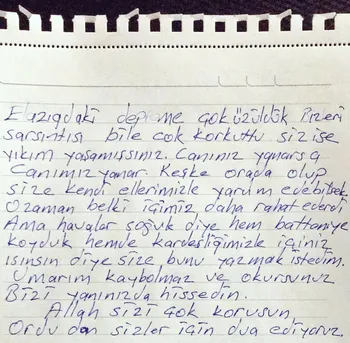 Elazığdaki depreme çok üzüldük bizleri
sarsıntısı bile çok korkuttu siz ise
yıkım yaşamışsınız. Canınız yanarsa
Canımız yanar. Keşke orada olup
size kendi ellerimizle yarım edebilsek
Ozaman belki içimiz daha rahat ederdi
Ama havalar soğuk diye hem battaniye
koyduk hemde kardeşliğimizle içiniz
ısınsın diye size bunu yazmak istedim.
Umarım kaybolmaz ve okursunuz
Bizi yanınızda hissedin.
Allah sizi çok korusun
Ordu dan sizler için dua ediyoruz.